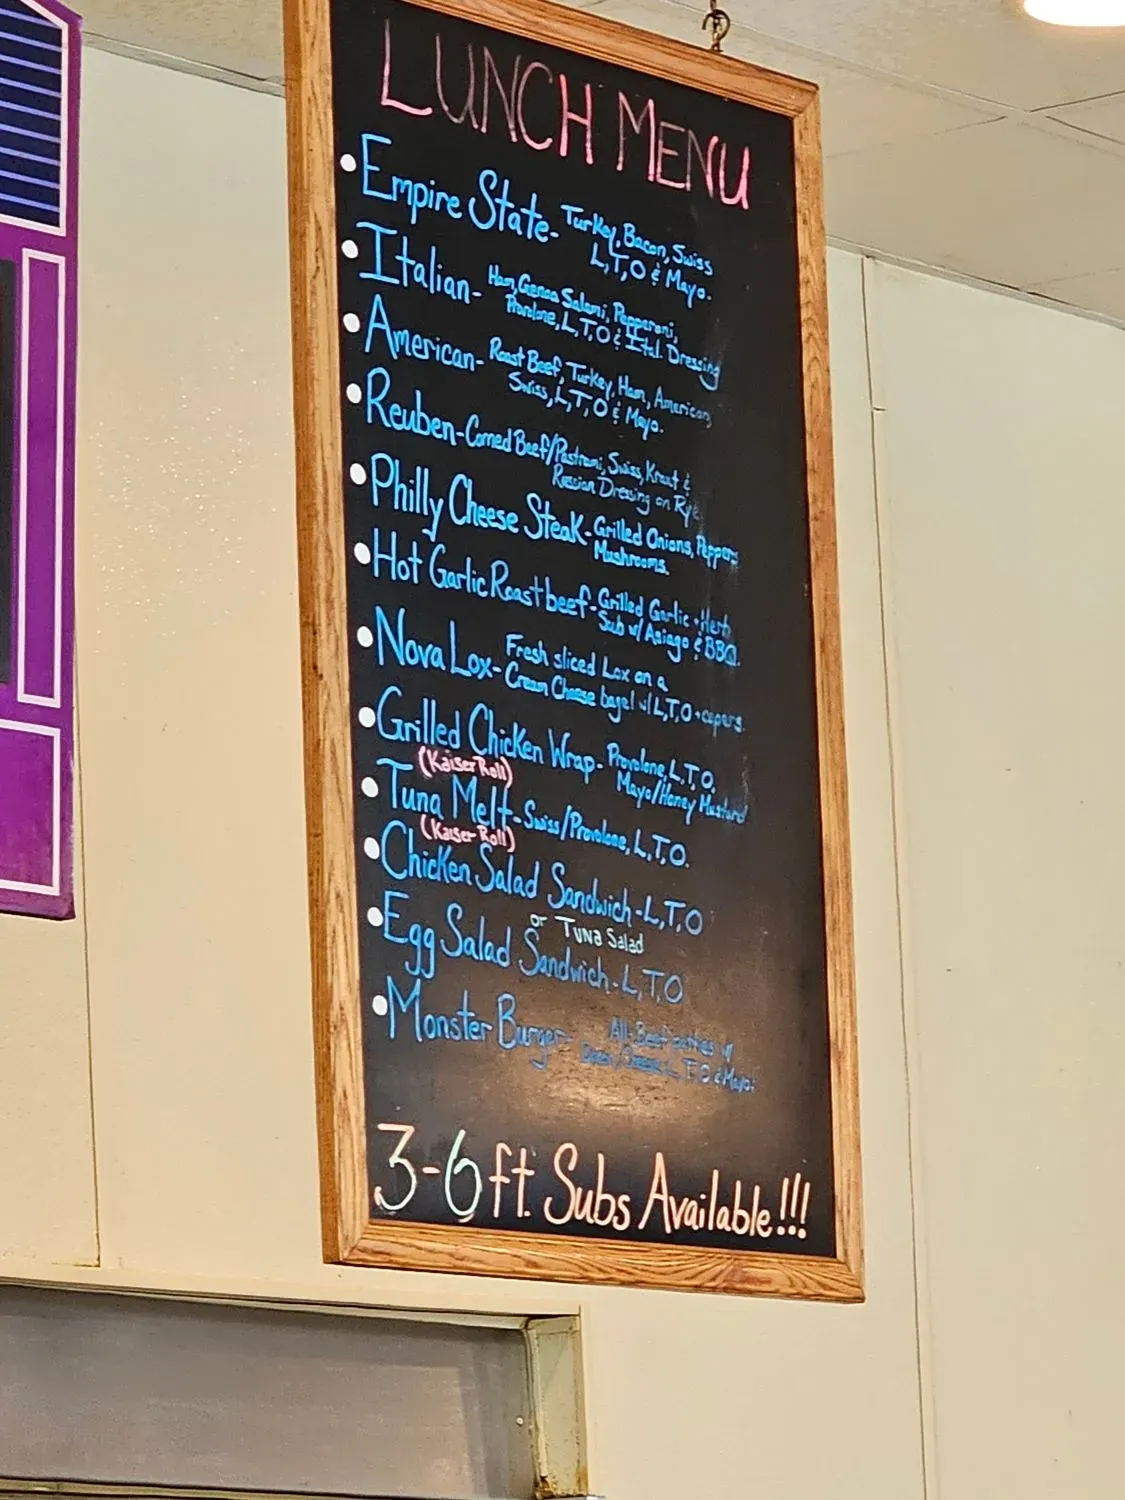 LUNCH MENU
Empire State- Turkey, Bacon, Swiss
L, T, O & Mayo.
Italian- Ham, Genoa Salami, Pepperoni,
Provolone, L, T, O & Ital. Dressing
American- Roast Beef, Turkey, Ham, American,
Swiss, L, T, O & Mayo.
Reuben- Corned Beef/Pastrami, Swiss, Kraut &
Russian Dressing on Rye
Philly Cheese Steak- Grilled Onions, Peppers
Mushrooms.
Hot Garlic Roast beef- Grilled Garlic + Herb
Sub w/ Asiago & BBQ.
Nova Lox- Fresh sliced Lox on a
Cream Cheese bagel w/ L, T, O + capers.
Grilled Chicken Wrap- Provolone, L, T, O,
(Kaiser Roll) Mayo/Honey Mustard
Tuna Melt- Swiss/Provolone, L, T, O.
(Kaiser Roll)
Chicken Salad Sandwich- L, T, O
or Tuna Salad
Egg Salad Sandwich- L, T, O
Monster Burger- All Beef patties w/
L, T, O & Mayo.
3-6 ft. Subs Available!!!